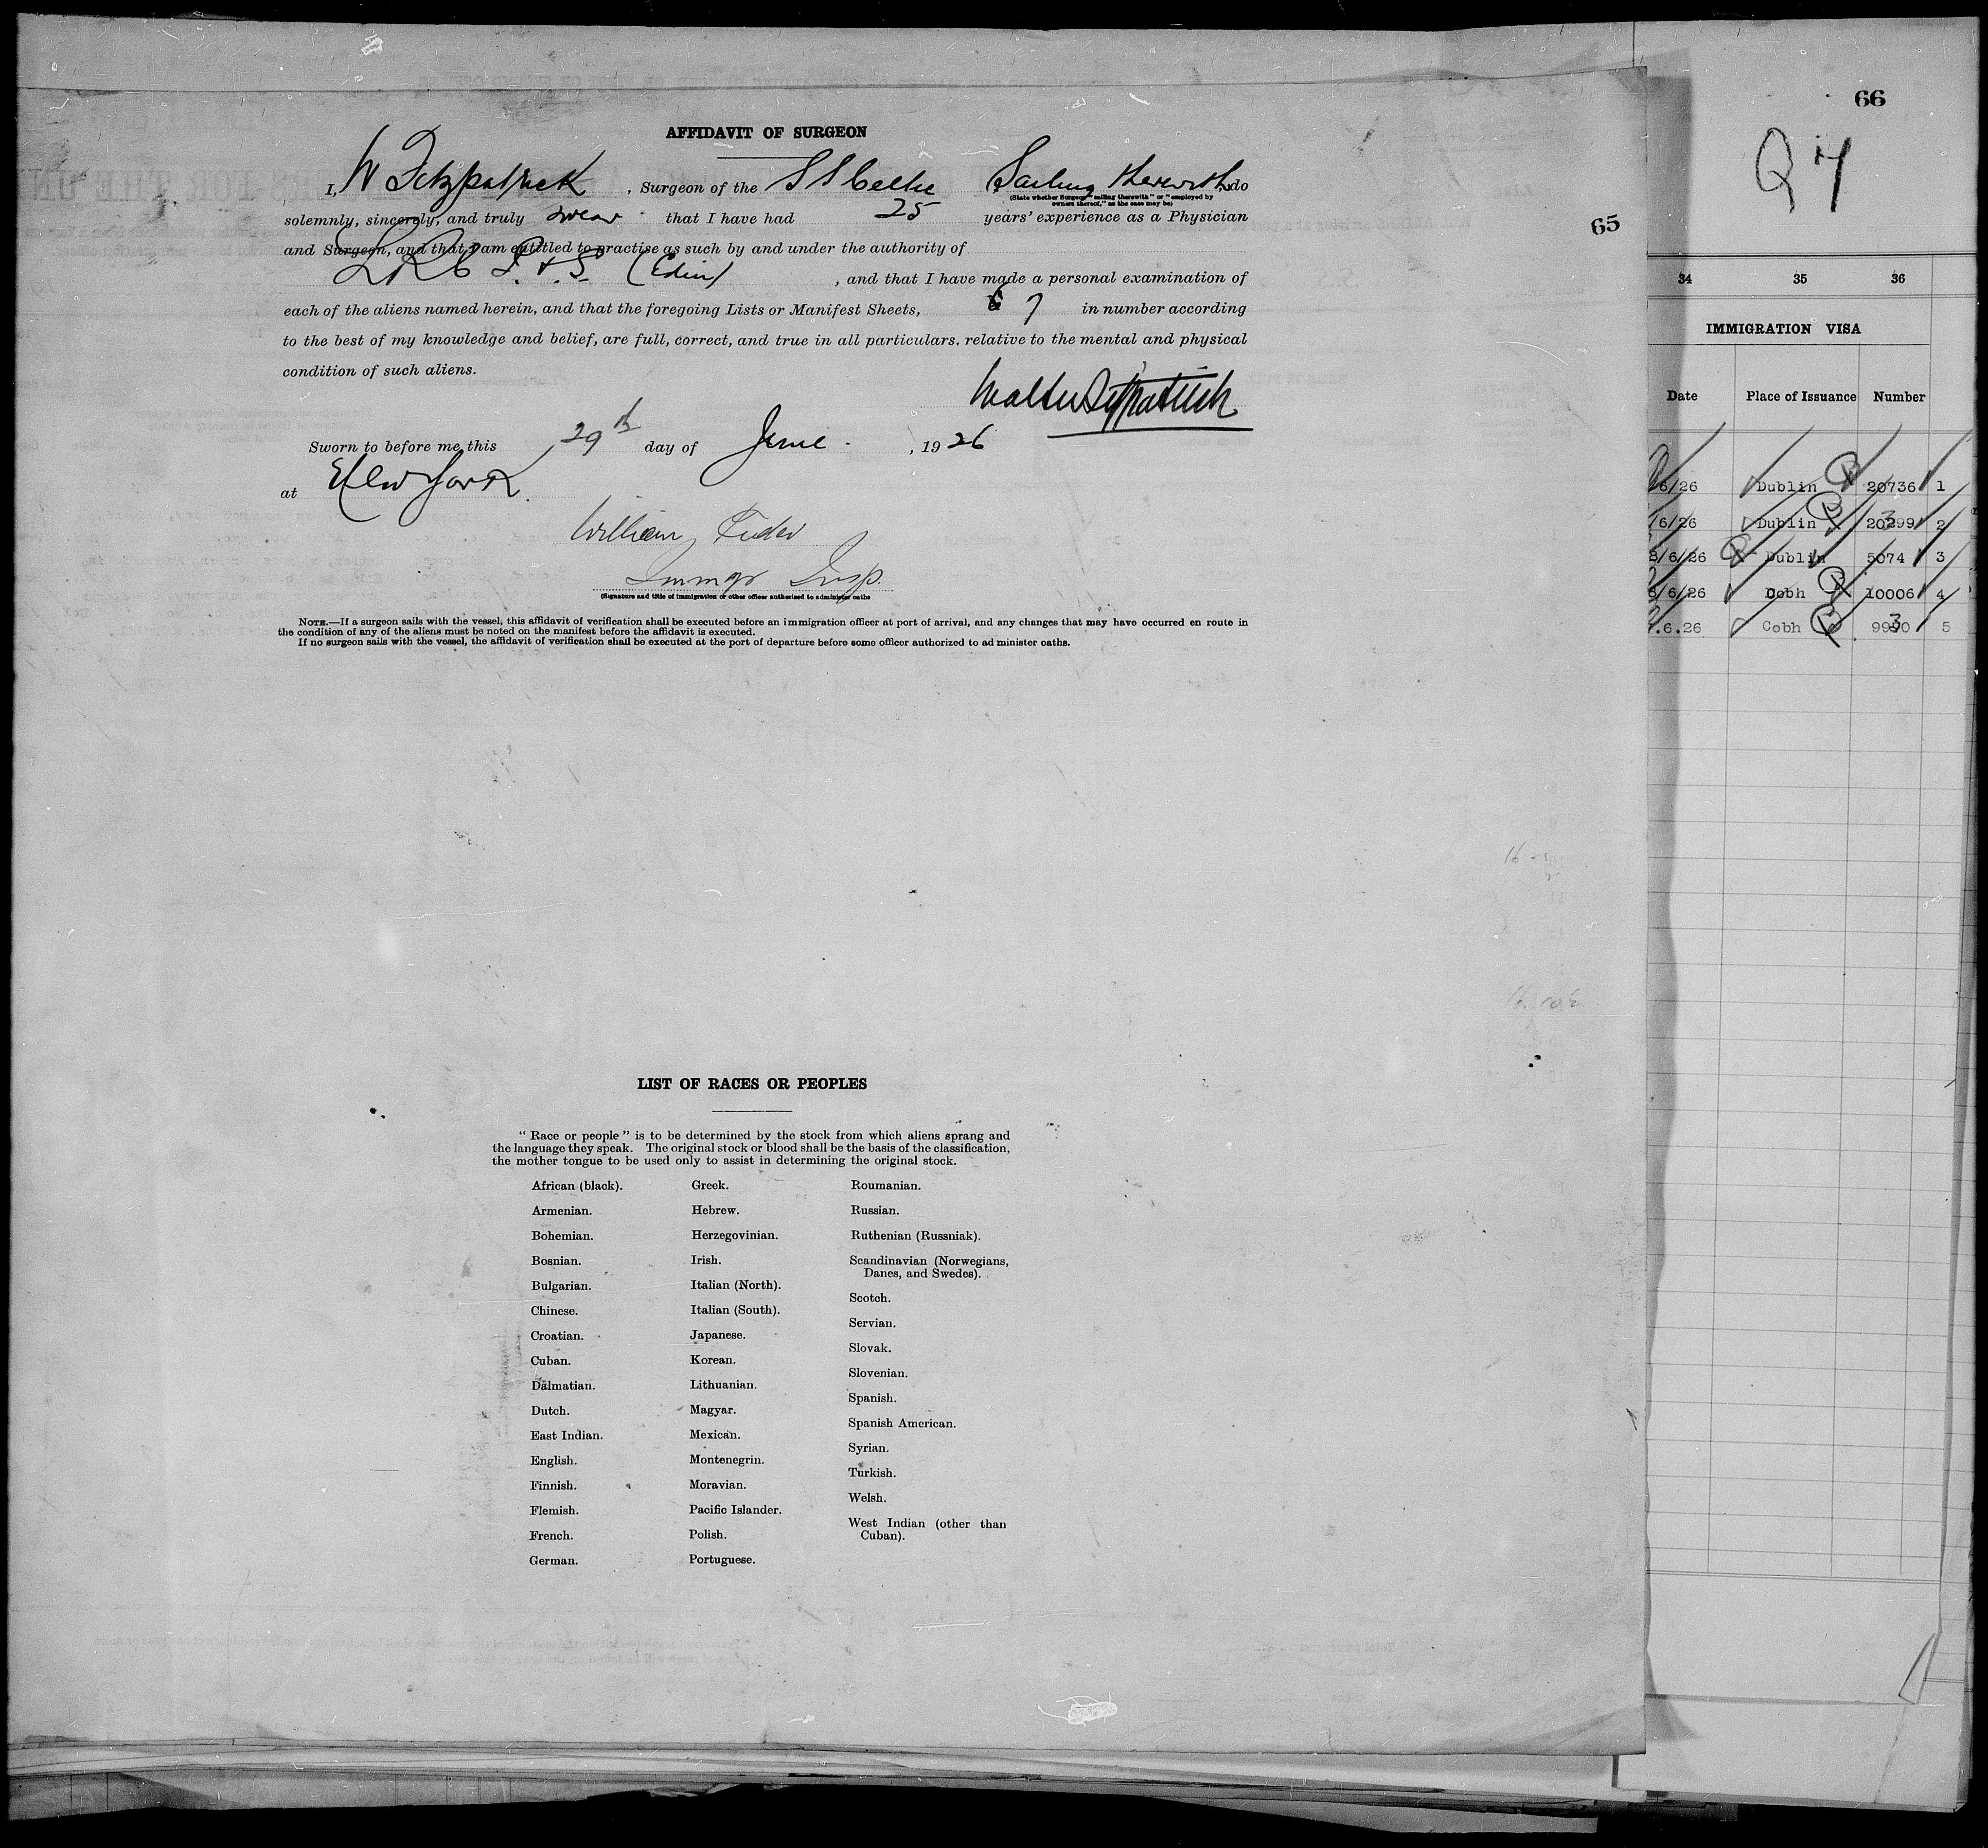 AFFIDAVIT OF SURGEON
I, W Fitzpatrick , Surgeon of the S S Celtic Sailing therewith, do
(State whether Surgeon "sailing therewith" or "employed by
owners thereof," as the case may be)
solemnly, sincerely, and truly swear that I have had 25 years' experience as a Physician
and Surgeon, and that I am entitled to practise as such by and under the authority of
L R C P. & S. (Edin) , and that I have made a personal examination of
each of the aliens named herein, and that the foregoing Lists or Manifest Sheets, 7 in number according
to the best of my knowledge and belief, are full, correct, and true in all particulars. relative to the mental and physical
condition of such aliens.
Walter Fitzpatrick
Sworn to before me, this 29th day of June , 1926
at New York.
William
Immgr Insp.
(Signature and title of immigration or other officer authorized to administer oaths
NOTE.—If a surgeon sails with the vessel, this affidavit of verification shall be executed before an immigration officer at port of arrival, and any changes that may have occurred en route in
the condition of any of the aliens must be noted on the manifest before the affidavit is executed.
If no surgeon sails with the vessel, the affidavit of verification shall be executed at the port of departure before some officer authorized to ad minister oaths.
65
LIST OF RACES OR PEOPLES
" Race or people " is to be determined by the stock from which aliens sprang and
the language they speak. The original stock or blood shall be the basis of the classification,
the mother tongue to be used only to assist in determining the original stock.
African (black).
Armenian.
Bohemian.
Bosnian.
Bulgarian.
Chinese.
Croatian.
Cuban.
Dalmatian.
Dutch.
East Indian.
English.
Finnish.
Flemish.
French.
German.
Greek.
Hebrew.
Herzegovinian.
Irish.
Italian (North).
Italian (South).
Japanese.
Korean.
Lithuanian.
Magyar.
Mexican.
Montenegrin.
Moravian.
Pacific Islander.
Polish.
Portuguese.
Roumanian.
Russian.
Ruthenian (Russniak).
Scandinavian (Norwegians,
Danes, and Swedes).
Scotch.
Servian.
Slovak.
Slovenian.
Spanish.
Spanish American.
Syrian.
Turkish.
Welsh.
West Indian (other than
Cuban).
66
34 35 36
IMMIGRATION VISA
Date Place of Issuance Number
6/26 Dublin 20736 1
/6/26 Dublin 2
/6/26 Dublin 5074 3
/6/26 Cobh 10006 4
.6.26 Cobh 5